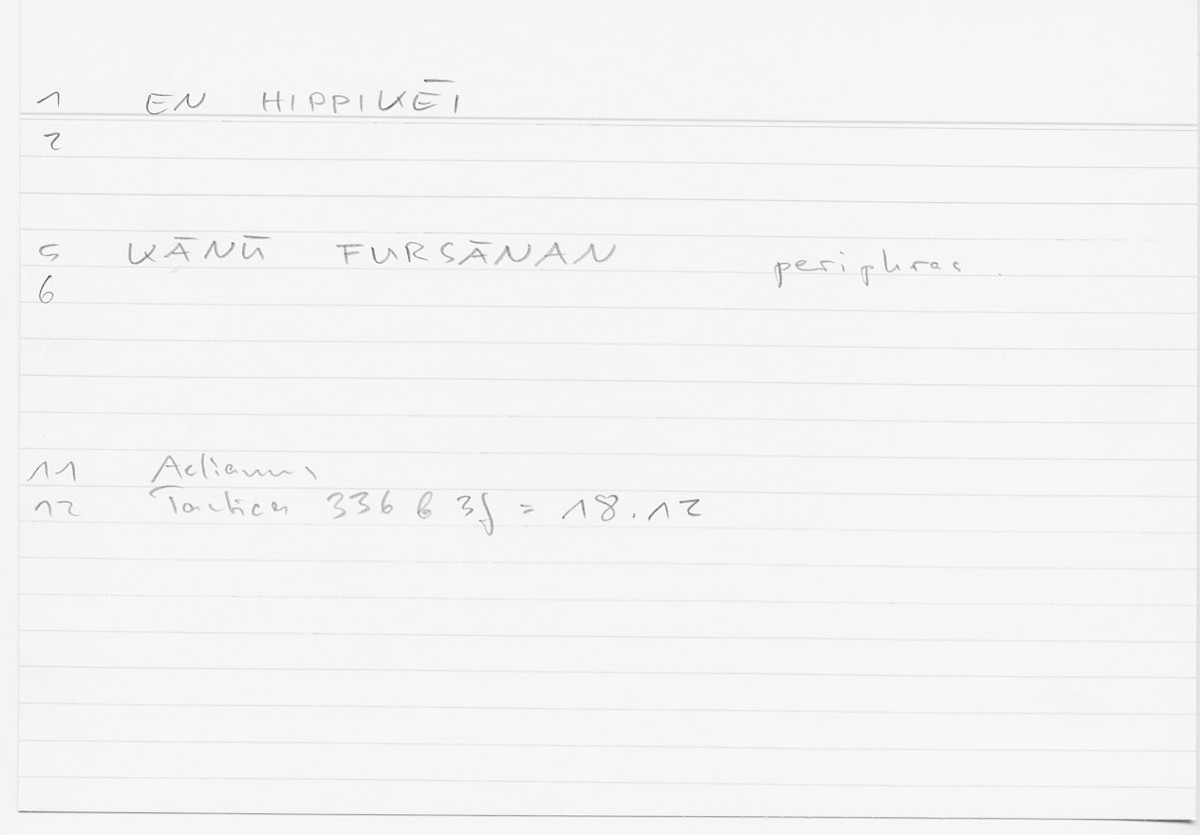 1 EN HIPPIKĒI
2
5 KĀNŪ FURSĀNAN periphras.
6
11 Aelianus
12 Tactica 336 b 3f = 18.12